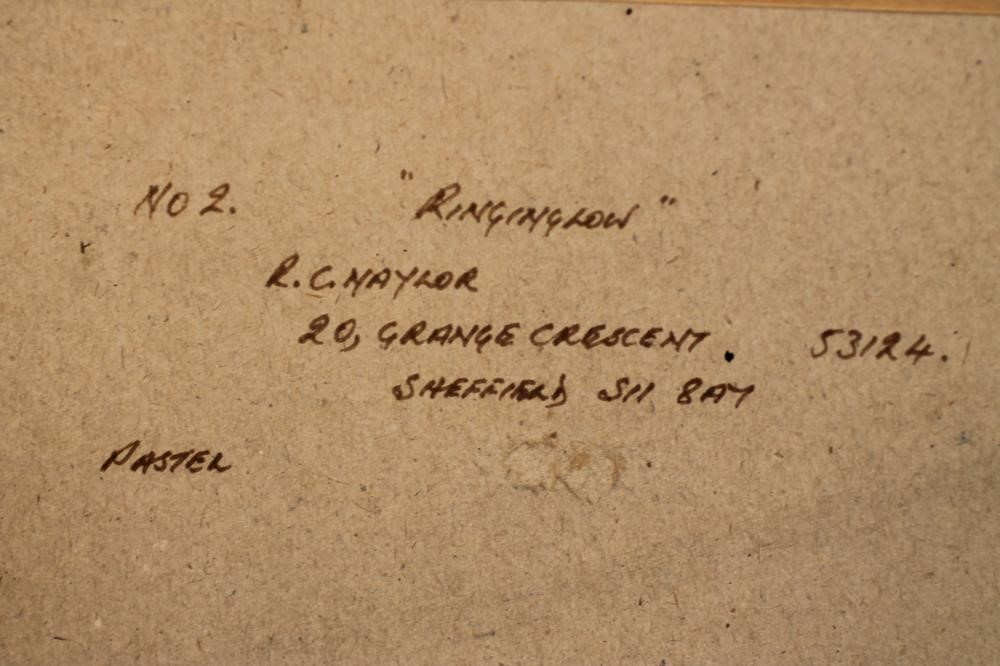 NO 2. "RINGINGLOW"
R.C. NAYLOR
20, GRANGE CRESCENT. 53124.
SHEFFIELD, S11 8AY
PASTEL